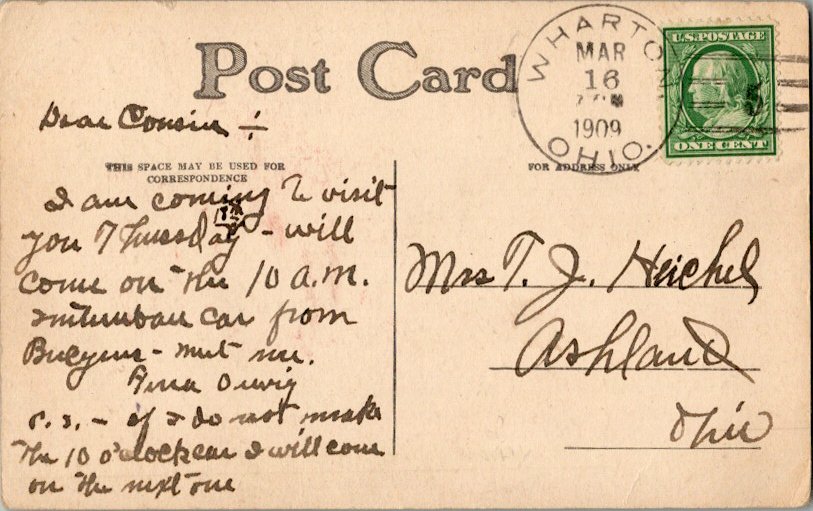 Post Card
WHARTON
MAR
16
1909
OHIO.
U.S. POSTAGE
ONE CENT
5
Dear Cousin ÷
THIS SPACE MAY BE USED FOR
CORRESPONDENCE
FOR ADDRESS ONLY
I am coming to visit
18th
you Thursday – will
come on the 10 a.m.
interurban car from
Bucyrus – meet me.
Orwig
P.S. – if I do not make
the 10 o'clock car I will come
on the next one
Mrs T. J. Heichel
Ashland
Ohio